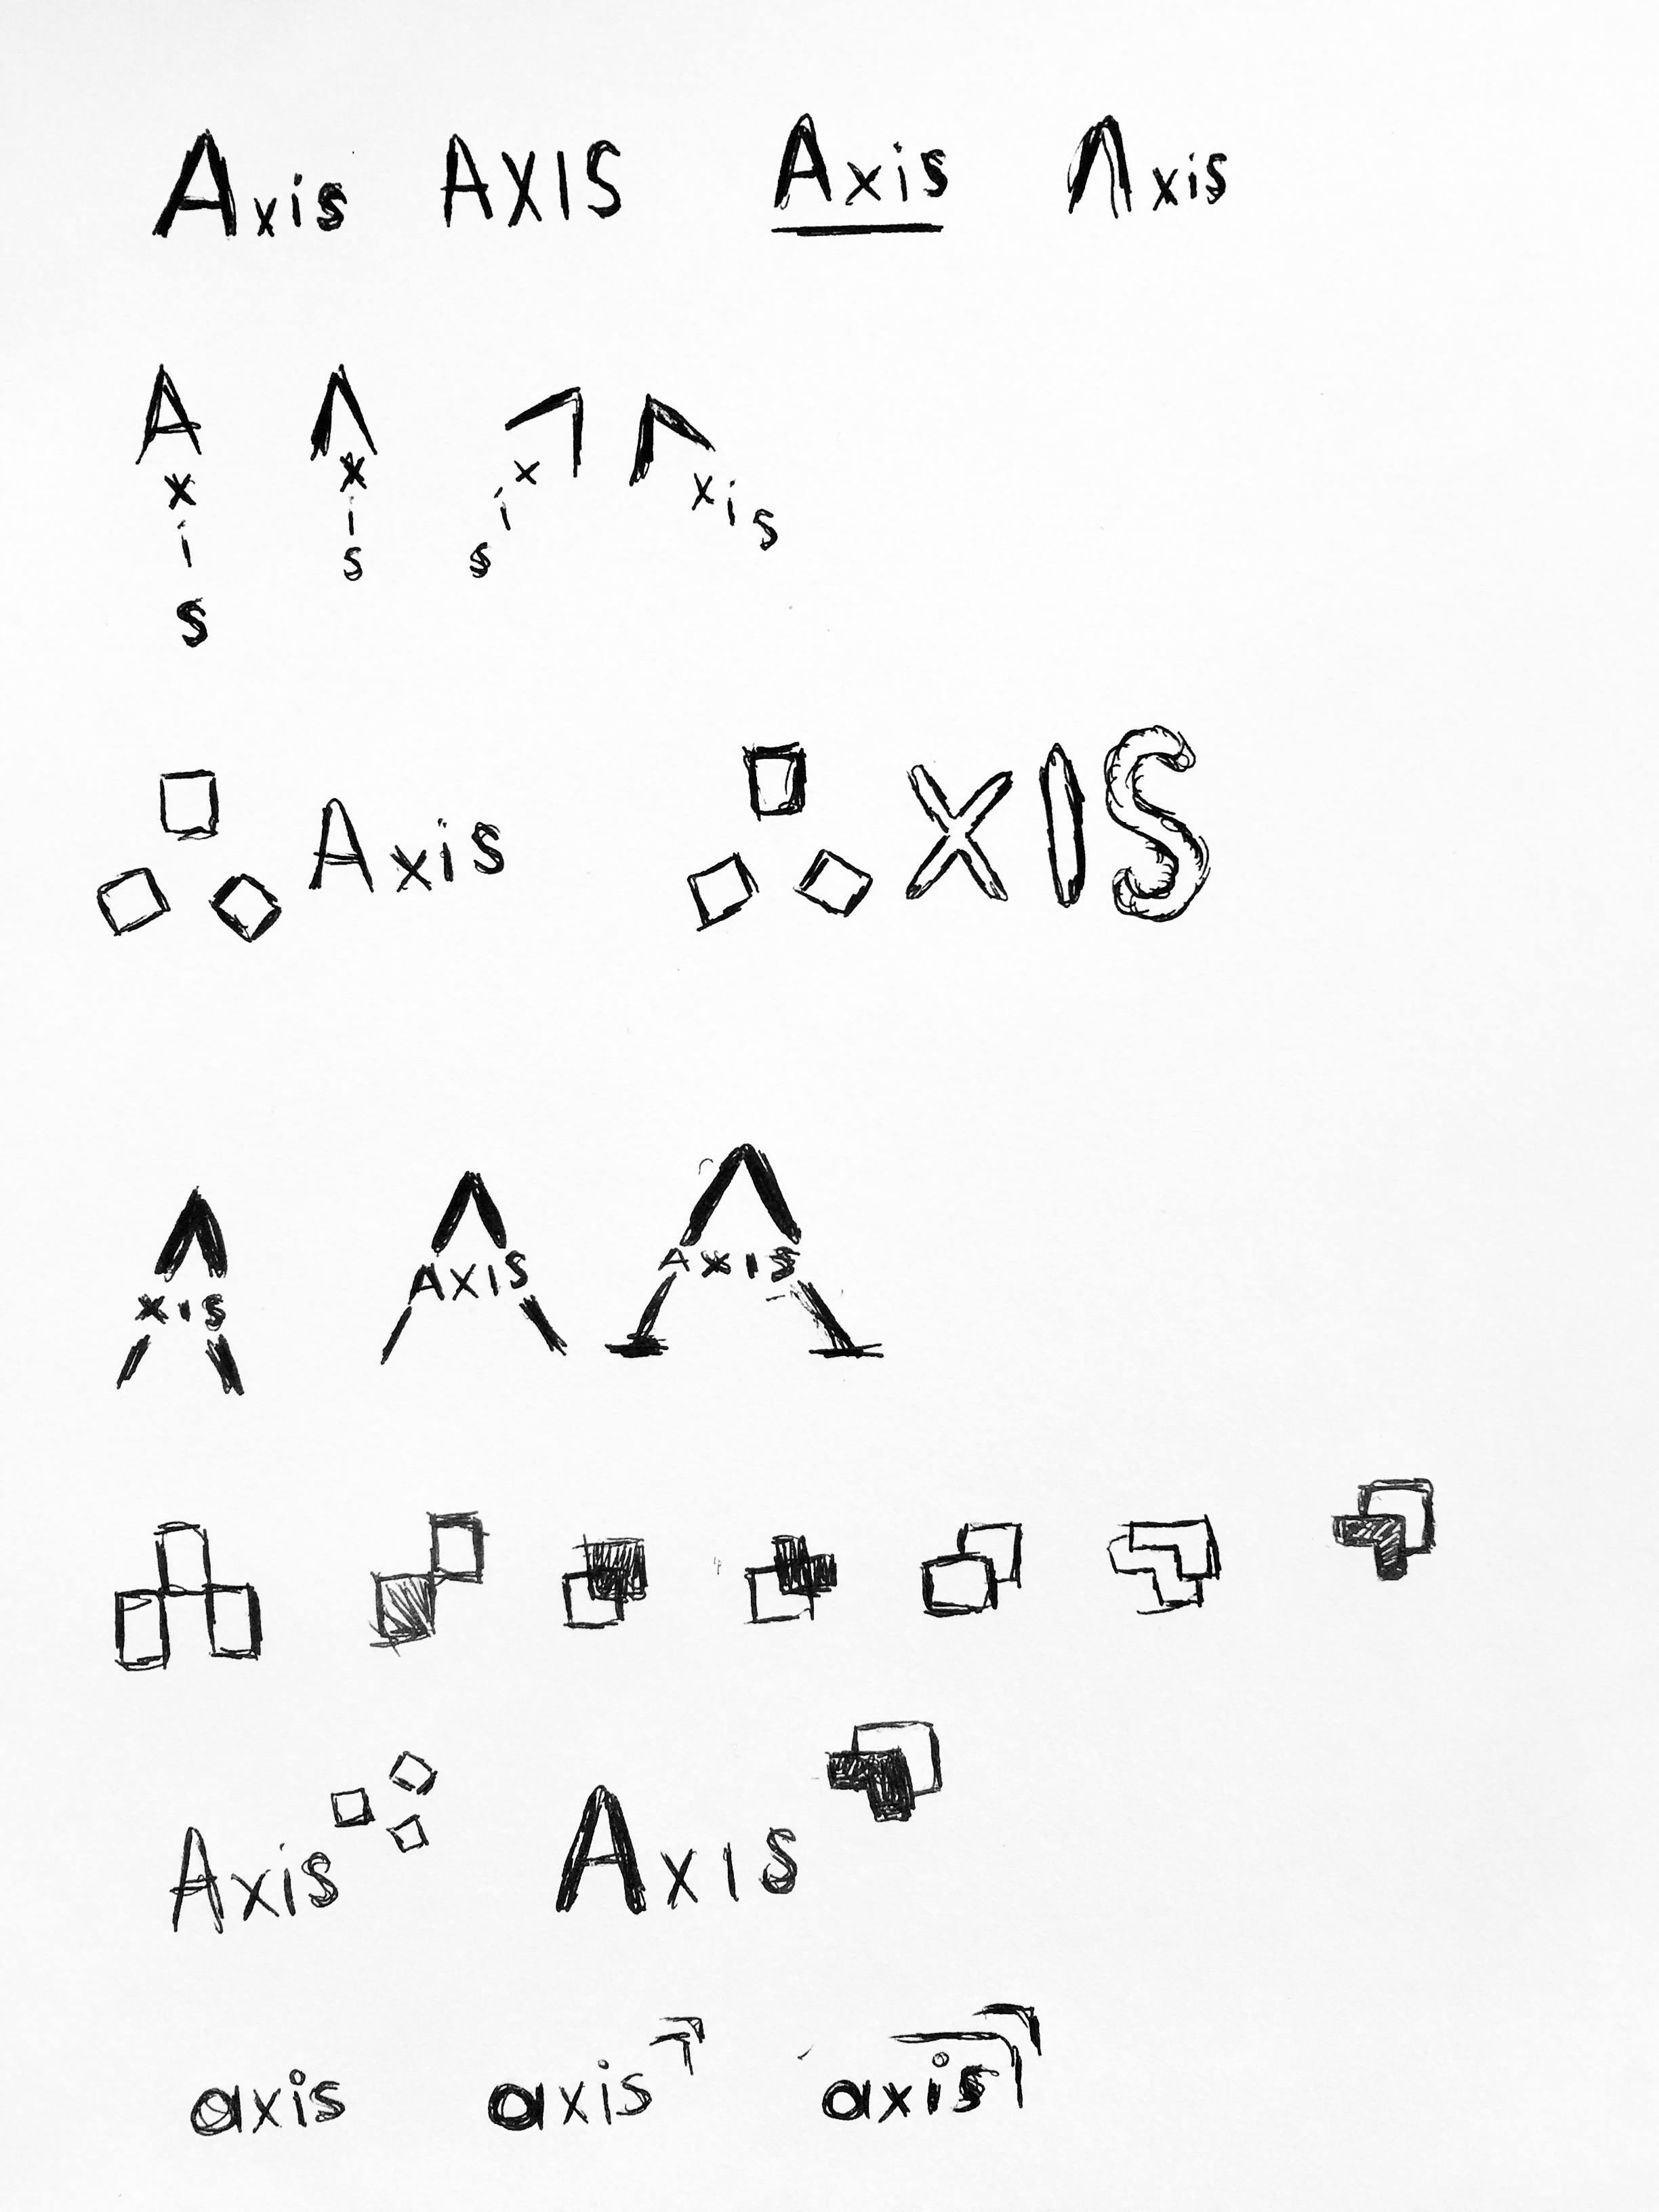 Axis AXIS Axis Λxis
A Λ
x x x xis
i i i
s s s
Axis XIS
XIS AXIS AXIS
Axis AxIs
axis axis axis